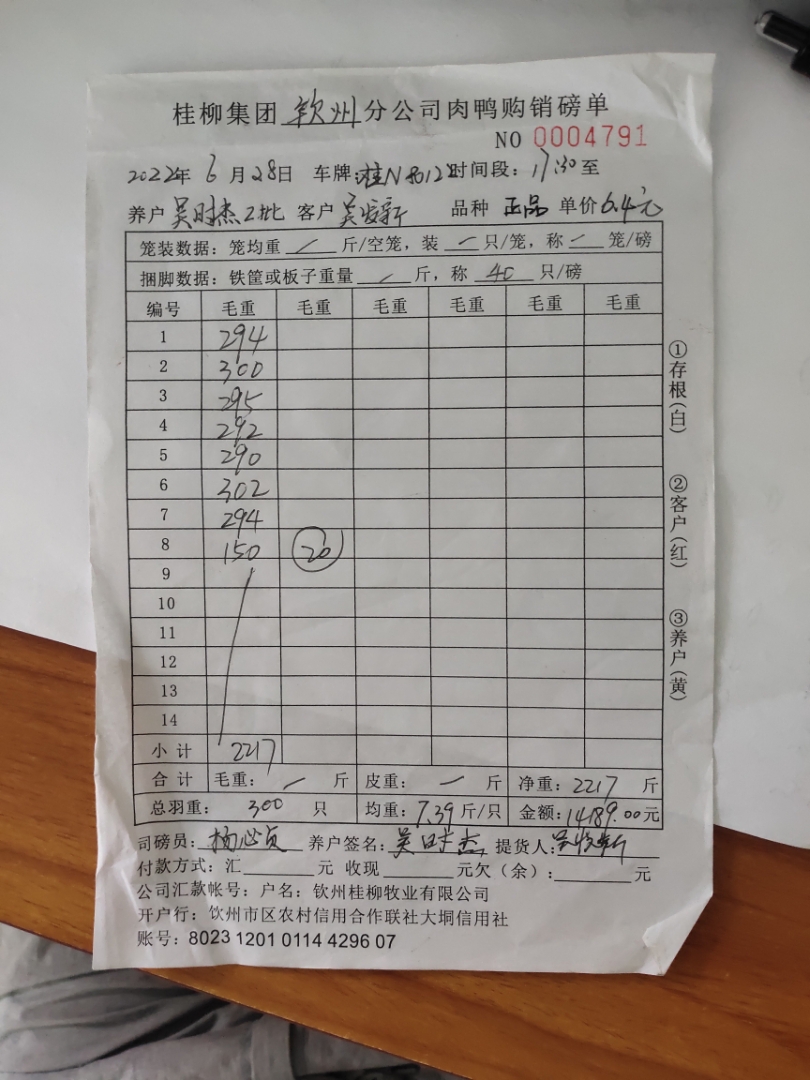 桂柳集团 钦州 分公司肉鸭购销磅单
NO 0004791
2022年 6 月 28日 车牌:桂N 时间段:17:30至
养户 吴时杰2批 客户 吴发新 品种 正品 单价 6.4元
笼装数据:笼均重 / 斤/空笼,装 / 只/笼,称 / 笼/磅
捆脚数据:铁筐或板子重量 / 斤,称 40 只/磅
编号 毛重 毛重 毛重 毛重 毛重 毛重
1 294
2 300
3 295
4 292
5 290
6 302
7 294
8 150 20
9
10
11
12
13
14
小计 2217
合计 毛重: / 斤 皮重: / 斤 净重:2217 斤
总羽重: 300 只 均重:7.39斤/只 金额:14189.00元
司磅员: 养户签名:吴时杰 提货人:吴发新
付款方式:汇 元 收现 元欠(余): 元
公司汇款帐号:户名:钦州桂柳牧业有限公司
开户行:钦州市区农村信用合作联社大垌信用社
账号:8023 1201 0114 4296 07
①存根(白)
②客户(红)
③养户(黄)